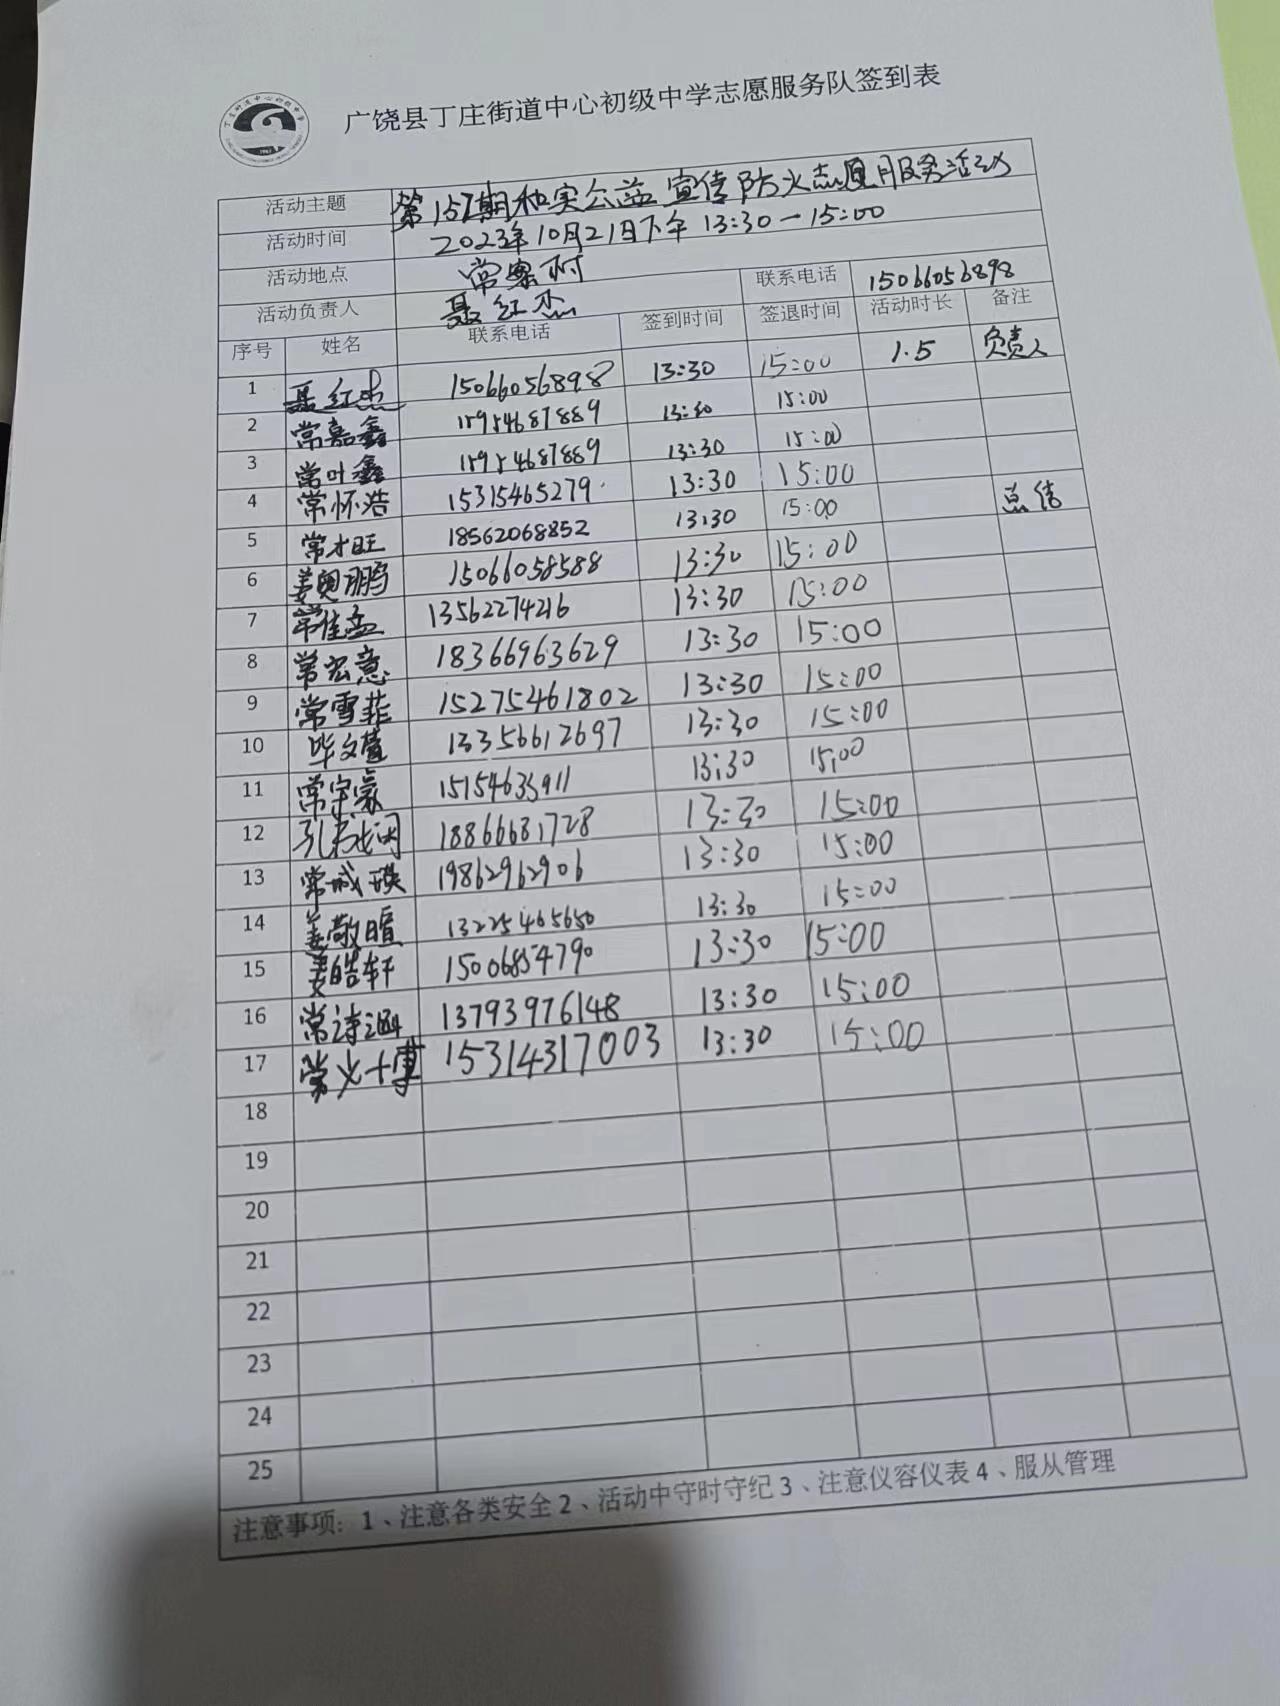 广饶县丁庄街道中心初级中学志愿服务队签到表
活动主题 第157期和实公益宣传防火志愿服务活动
活动时间 2023年10月21日下午 13:30-15:00
活动地点 常寨村
活动负责人 聂红杰 联系电话 15066056898
序号 姓名 联系电话 签到时间 签退时间 活动时长 备注
1 聂红杰 15066056898 13:30 15:00 1.5 负责人
2 常嘉鑫 15954687889 13:30 15:00
3 常叶鑫 15954687889 13:30 15:00
4 常怀浩 15315465279 13:30 15:00 总结
5 常才旺 18562068852 13:30 15:00
6 姜奥鹏 15066058588 13:30 15:00
7 常佳孟 13562274216 13:30 15:00
8 常宏意 18366963629 13:30 15:00
9 常雪菲 15275461802 13:30 15:00
10 毕文萱 13356612697 13:30 15:00
11 常宇豪 15154635911 13:30 15:00
12 18866681728 13:30 15:00
13 常城琪 19862962906 13:30 15:00
14 姜敬暄 13225465650 13:30 15:00
15 姜皓轩 15006854790 13:30 15:00
16 常诗涵 13793976148 13:30 15:00
17 15314317003 13:30 15:00
18
19
20
21
22
23
24
25
注意事项：1、注意各类安全 2、活动中守时守纪 3、注意仪容仪表 4、服从管理